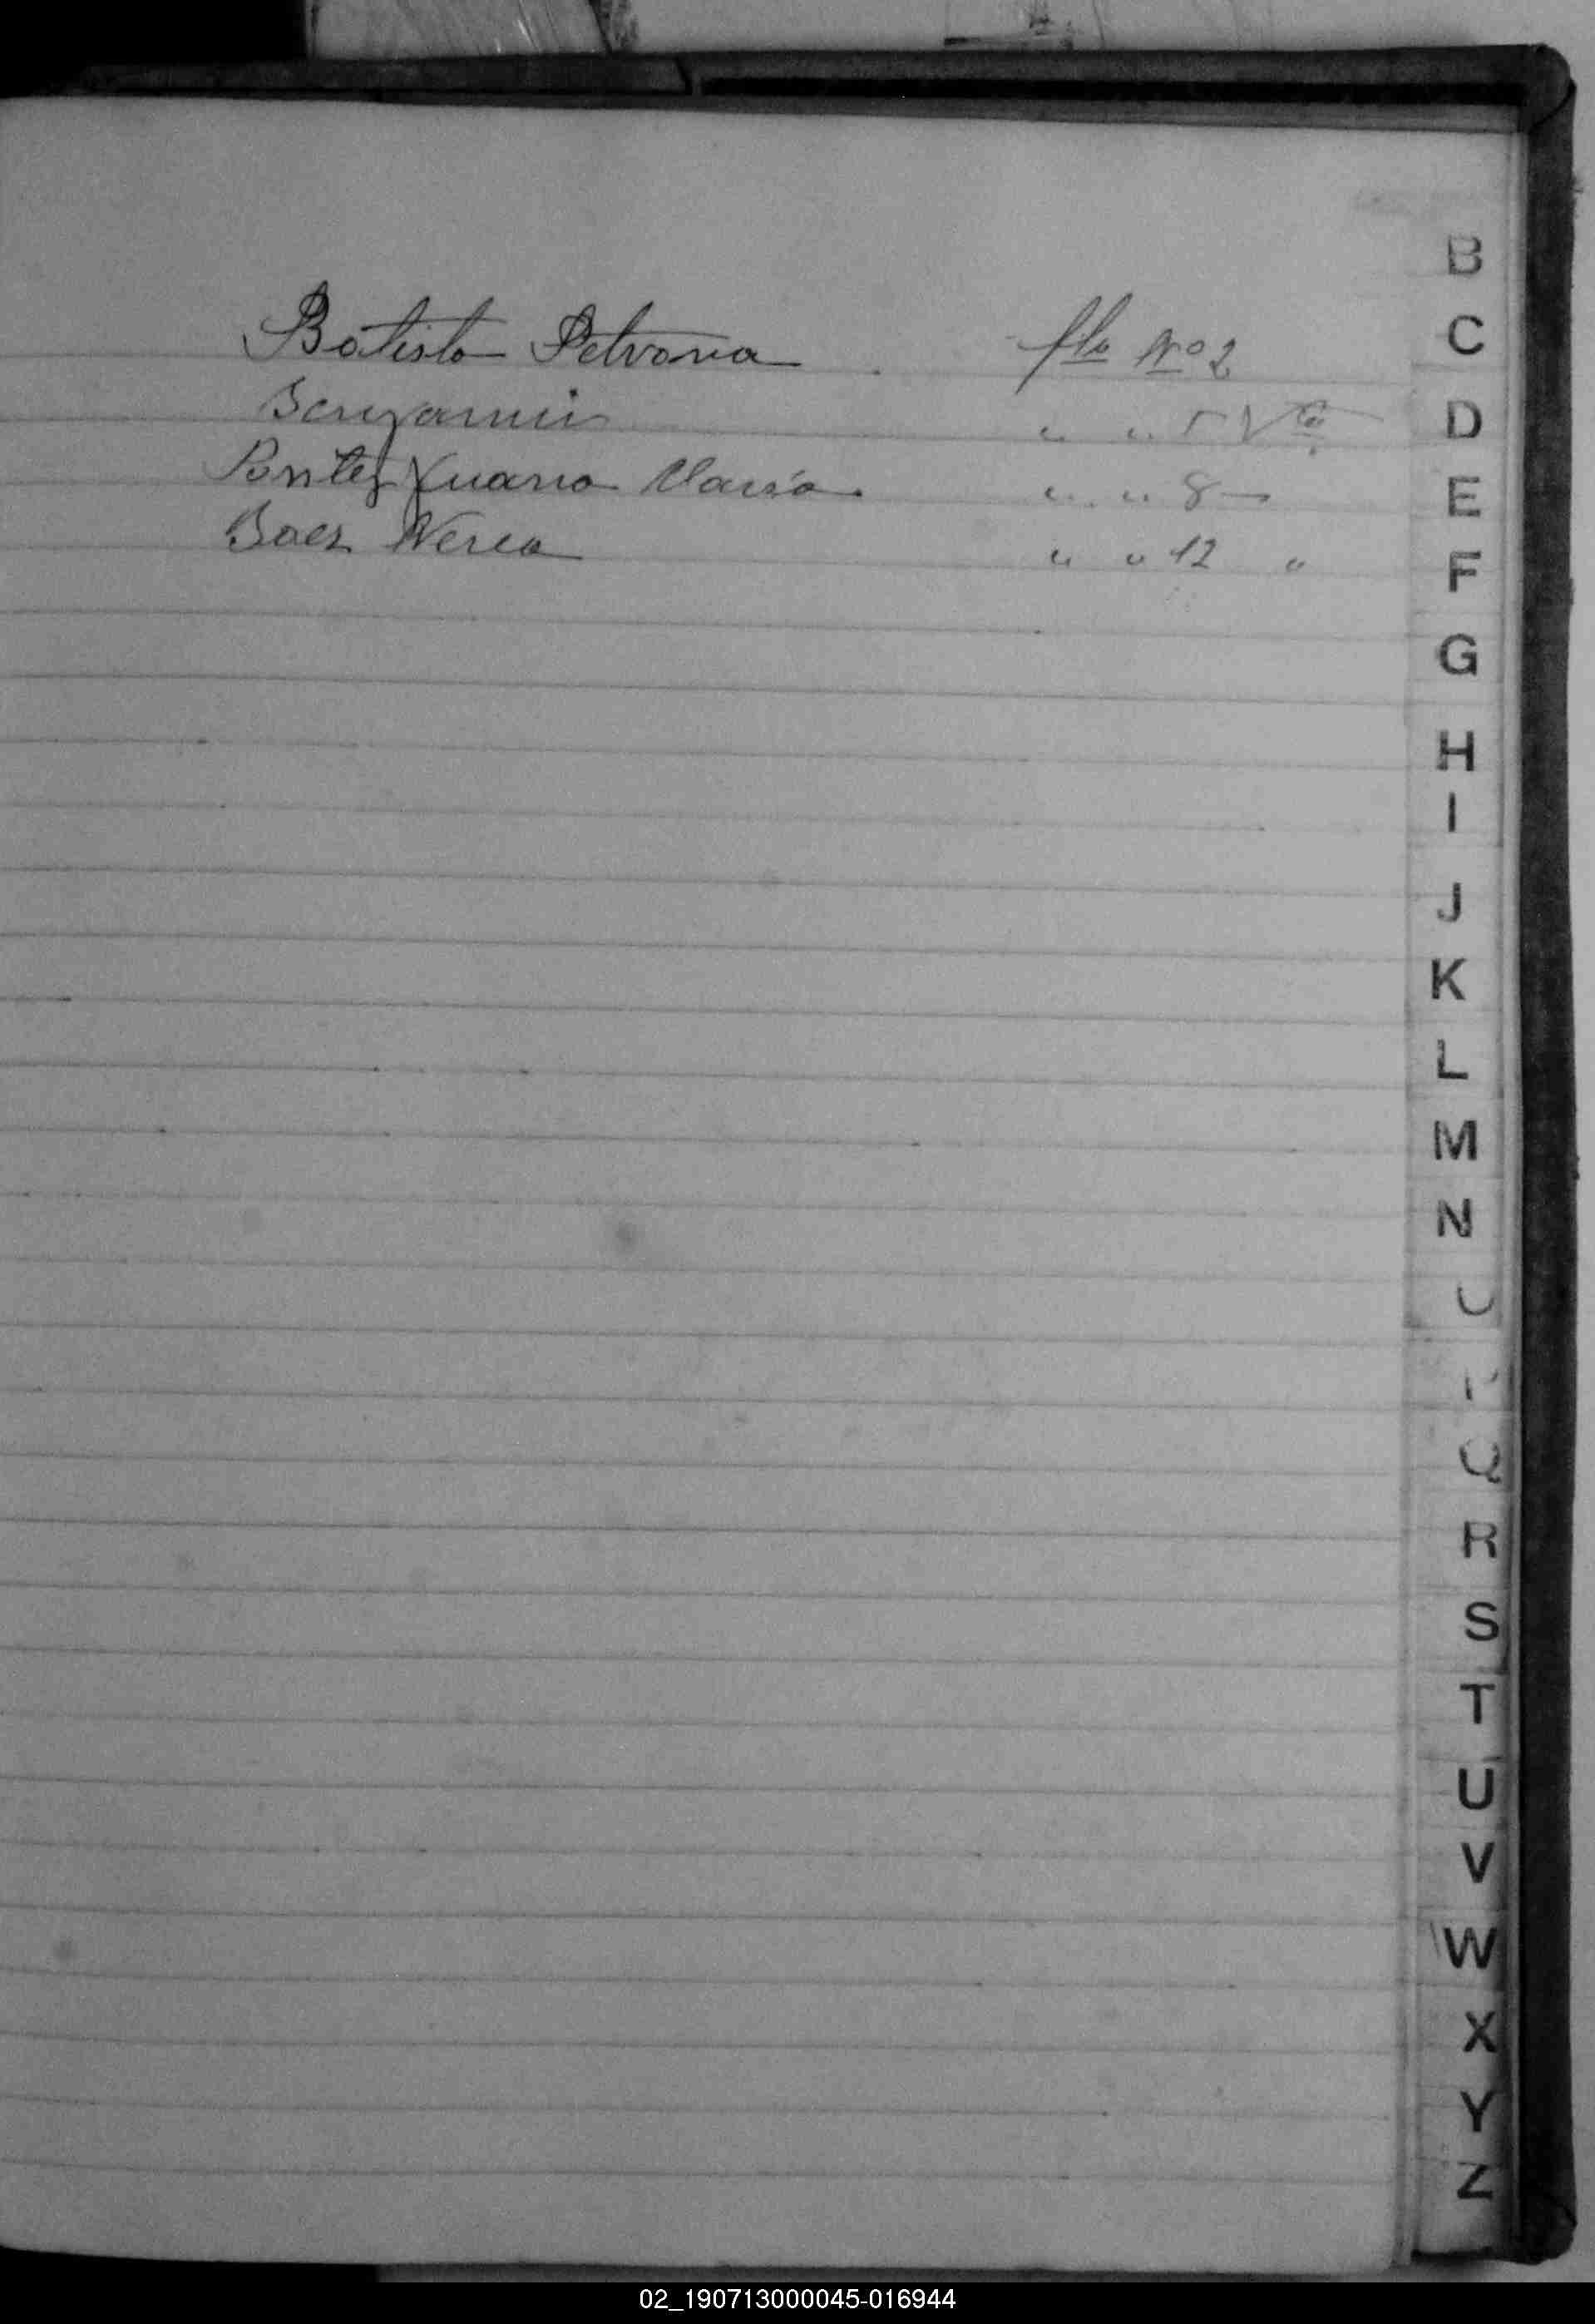 Batista Petrona flo No 2
Benjamin " " 5 Vto
Juana Maria " " 8 —
Baez Nerea " " 12 "
B
C
D
E
F
G
H
I
J
K
L
M
N
Q
R
S
T
U
V
W
X
Y
Z
02_190713000045-016944